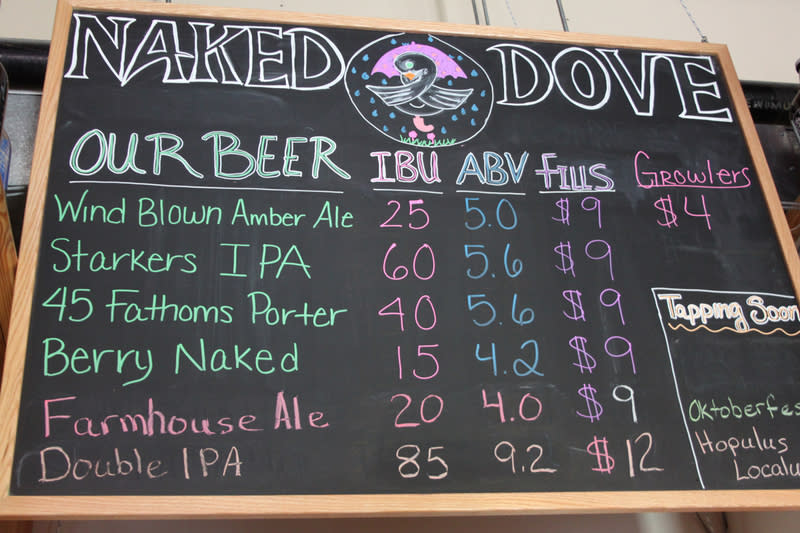 NAKED DOVE
OUR BEER IBU ABV FILLS GROWLERS
Wind Blown Amber Ale 25 5.0 $9 $4
Starkers IPA 60 5.6 $9
45 Fathoms Porter 40 5.6 $9
Berry Naked 15 4.2 $9
Farmhouse Ale 20 4.0 $9
Double IPA 85 9.2 $12
Tapping Soon
Oktoberfes
Hopulus
Localu